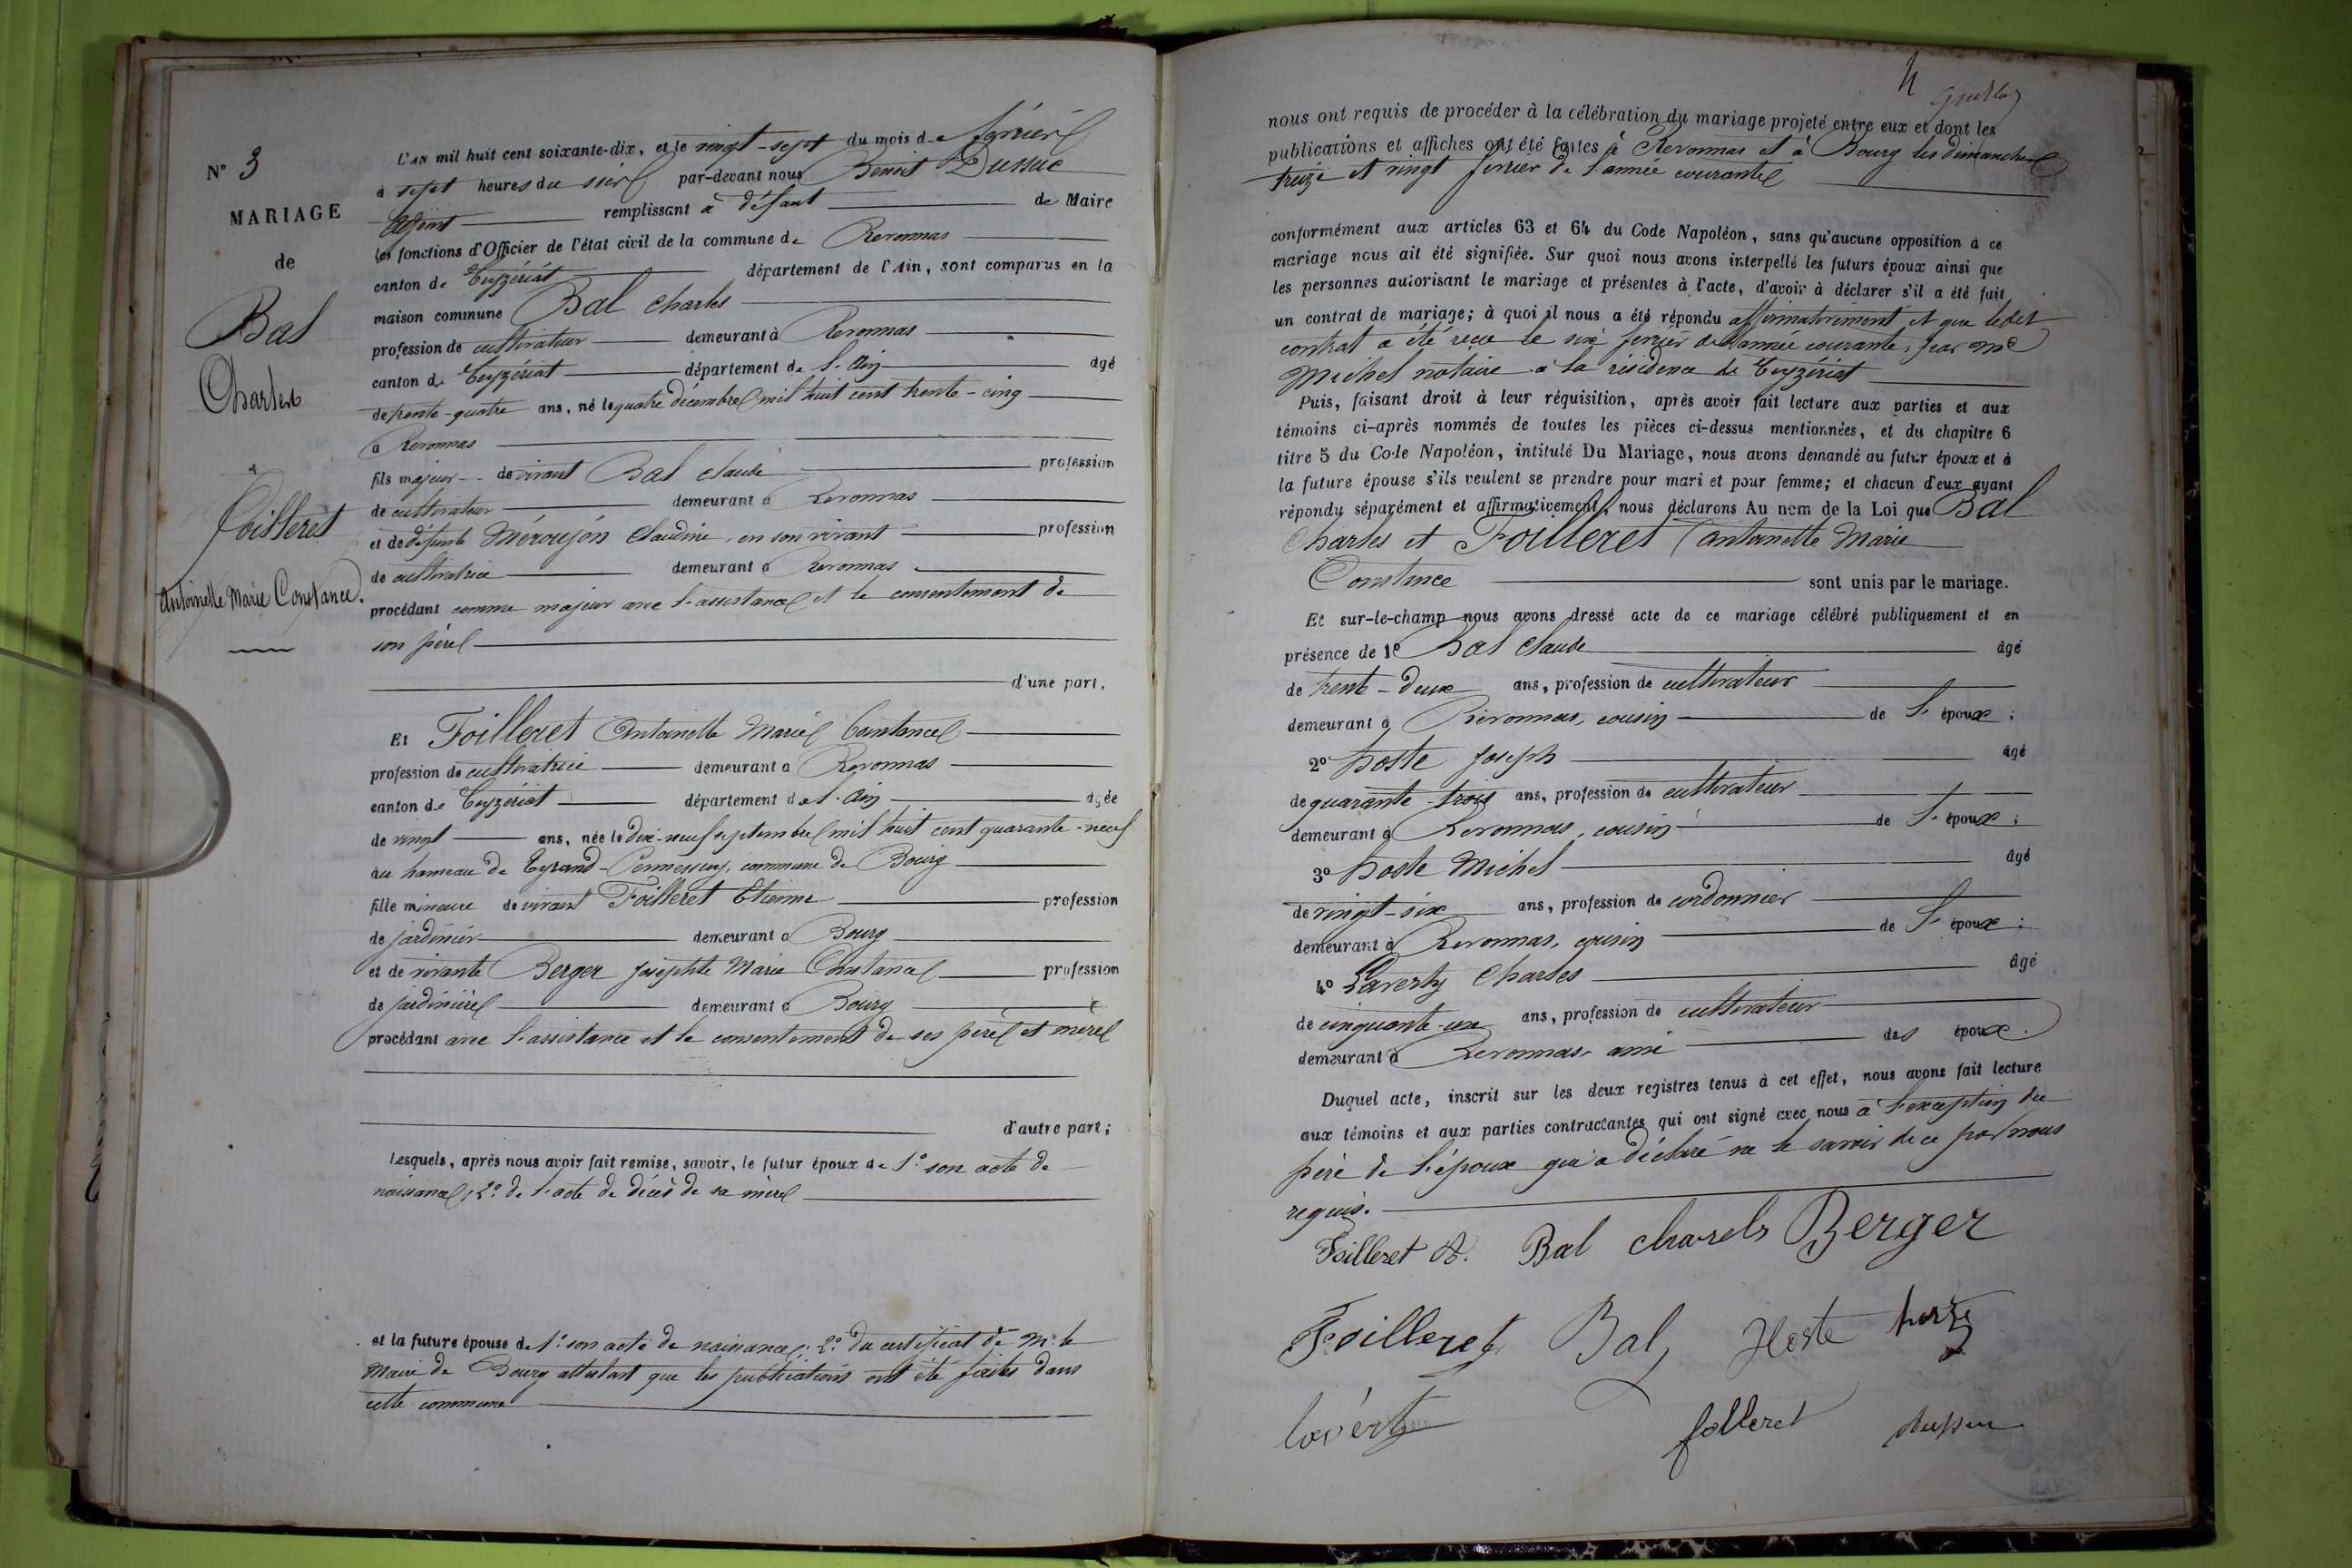 N° 3
MARIAGE
de
Bal
Charles
&
Foilleret
Antoinette Marie Constance.
L'AN mil huit cent soixante-dix, et le vingt-sept du mois de février
à sept heures du soir par-devant nous Benoit Dussuc
adjoint remplissant à défaut de Maire
les fonctions d'Officier de l'état civil de la commune de Revonnas
canton de Ceyzériat département de l'Ain, sont comparus en la
maison commune Bal Charles
profession de cultivateur demeurant à Revonnas
canton de Ceyzériat département de l'Ain âgé
de trente-quatre ans, né le quatre décembre mil huit cent trente-cinq
à Revonnas
fils majeur de vivant Bal Claude profession
de cultivateur demeurant à Revonnas
et de défunte Claudine, en son vivant profession
de cultivatrice demeurant à Revonnas
procédant comme majeur avec l'assistance et le consentement de
son père
d'une part,
Et Foilleret Antoinette Marie Constance
profession de cultivatrice demeurant à Revonnas
canton de Ceyzériat département de l'Ain âgée
de vingt ans, née le dix-neuf septembre mil huit cent quarante-neuf
au hameau de commune de Bourg
fille mineure de vivant Foilleret Etienne profession
de jardinier demeurant à Bourg
et de vivante Berger Josephte Marie Constance profession
de jardinière demeurant à Bourg
procédant avec l'assistance et le consentement de ses père et mère
d'autre part;
Lesquels, après nous avoir fait remise, savoir, le futur époux de 1° son acte de
naissance; 2° de l'acte de décès de sa mère
et la future épouse de 1° son acte de naissance; 2° du certificat de Mr le
Maire de Bourg attestant que les publications ont été faites dans
cette commune
4
nous ont requis de procéder à la célébration du mariage projeté entre eux et dont les
publications et affiches ont été faites à Revonnas et à Bourg les dimanches
treize et vingt février de l'année courante
conformément aux articles 63 et 64 du Code Napoléon, sans qu'aucune opposition à ce
mariage nous ait été signifiée. Sur quoi nous avons interpellé les futurs époux ainsi que
les personnes autorisant le mariage et présentes à l'acte, d'avoir à déclarer s'il a été fait
un contrat de mariage; à quoi il nous a été répondu affirmativement et que ledit
contrat a été reçu le six février de l'année courante, par Me
Michel notaire à la résidence de Ceyzériat
Puis, faisant droit à leur réquisition, après avoir fait lecture aux parties et aux
témoins ci-après nommés de toutes les pièces ci-dessus mentionnées, et du chapitre 6
titre 5 du Code Napoléon, intitulé Du Mariage, nous avons demandé au futur époux et à
la future épouse s'ils veulent se prendre pour mari et pour femme; et chacun d'eux ayant
répondu séparément et affirmativement, nous déclarons Au nom de la Loi que Bal
Charles et Foilleret Antoinette Marie
Constance sont unis par le mariage.
Et sur-le-champ nous avons dressé acte de ce mariage célébré publiquement et en
présence de 1° Bal Claude âgé
de trente-deux ans, profession de cultivateur
demeurant à Revonnas, cousin de l'époux;
2° hoste Joseph âgé
de quarante-trois ans, profession de cultivateur
demeurant à Revonnas, cousin de l'époux;
3° hoste Michel âgé
de vingt-six ans, profession de cordonnier
demeurant à Revonnas, cousin de l'époux;
4° Charles âgé
de cinquante-un ans, profession de cultivateur
demeurant à Revonnas, ami des époux.
Duquel acte, inscrit sur les deux registres tenus à cet effet, nous avons fait lecture
aux témoins et aux parties contractantes qui ont signé avec nous à l'exception du
père de l'époux qui a déclaré ne le savoir de ce par nous
requis.
Foilleret A. Bal charels Berger
Foilleret Bal Hoste
folleret